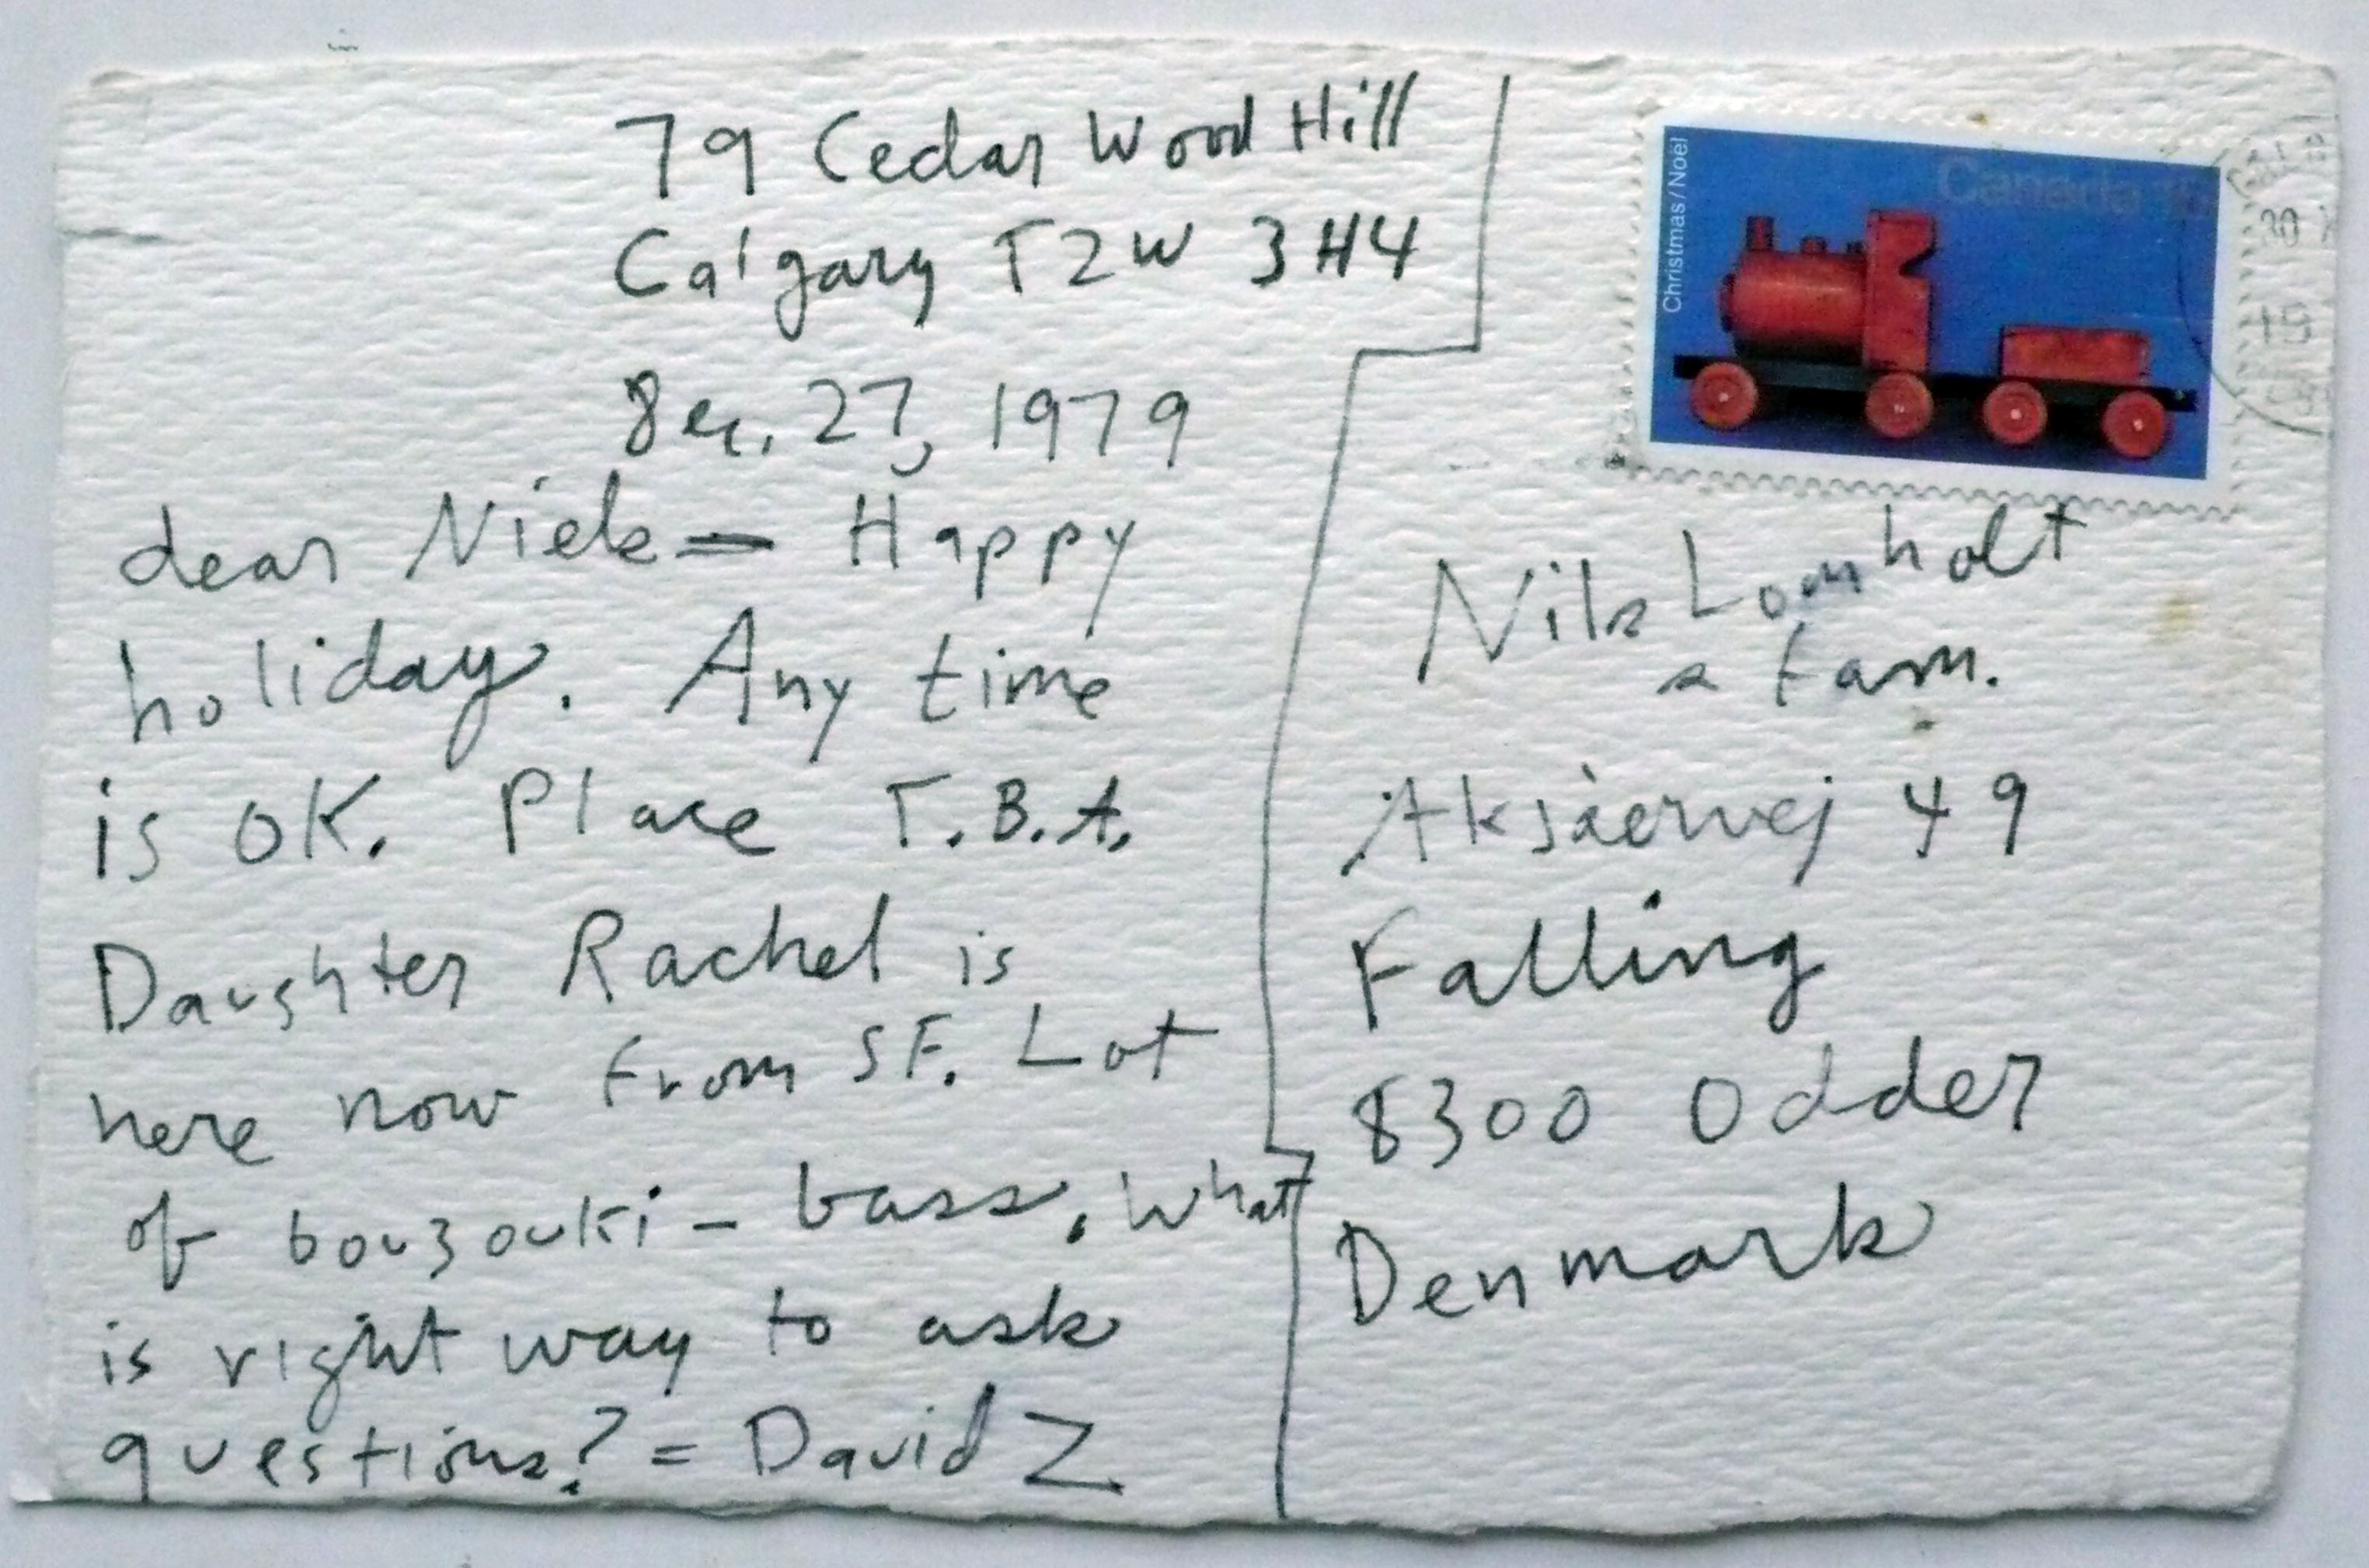 79 Cedar Wood Hill
Calgary T2W 3H4
Dec. 27, 1979
dear Niels — Happy
holiday. Any time
is OK. Place T.B.A.
Daughter Rachel is
here now from SF. Lot
of bouzouki – bass. What
is right way to ask
questions? = David Z
Christmas/Noël
Canada
30
Nils Lomholt
& fam.
Aksàervej 49
Falling
8300 Odder
Denmark